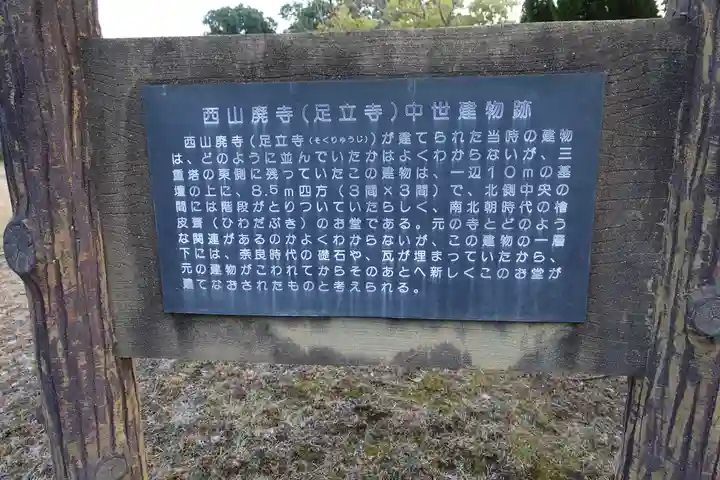 西山廃寺(足立寺)中世建物跡
西山廃寺(足立寺(そくりゅうじ))が建てられた当時の建物
は、どのように並んでいたかはよくわからないが、三
重塔の東側に残っていたこの建物は、一辺10mの基
壇の上に、8.5m四方(3間×3間)で、北側中央の
間には階段がとりついていたらしく、南北朝時代の檜
皮葺(ひわだぶき)のお堂である。元の寺とどのよう
な関連があるのかよくわからないが、この建物の一層
下には、奈良時代の礎石や、瓦が埋まっていたから、
元の建物がこわれてからそのあとへ新しくこのお堂が
建てなおされたものと考えられる。